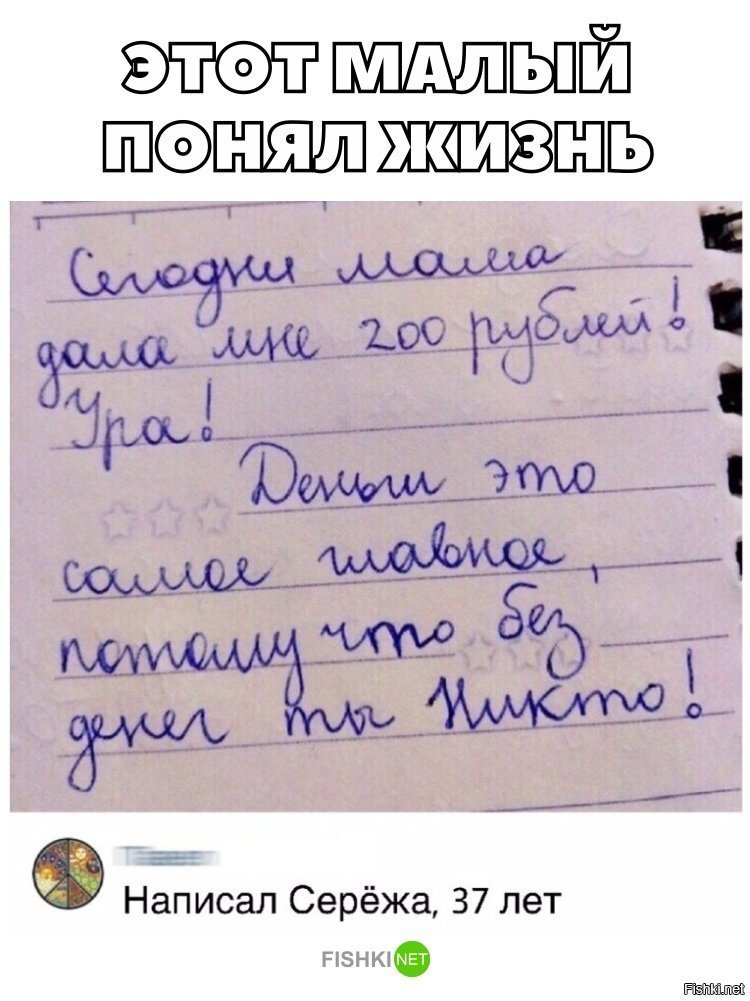 ЭТОТ МАЛЫЙ
ПОНЯЛ ЖИЗНЬ
Сегодня мама
дала мне 200 рублей!
Ура!
Деньги это
самое главное,
потому что без
денег ты Никто!
Написал Серёжа, 37 лет
FISHKI NET
Fishki.net